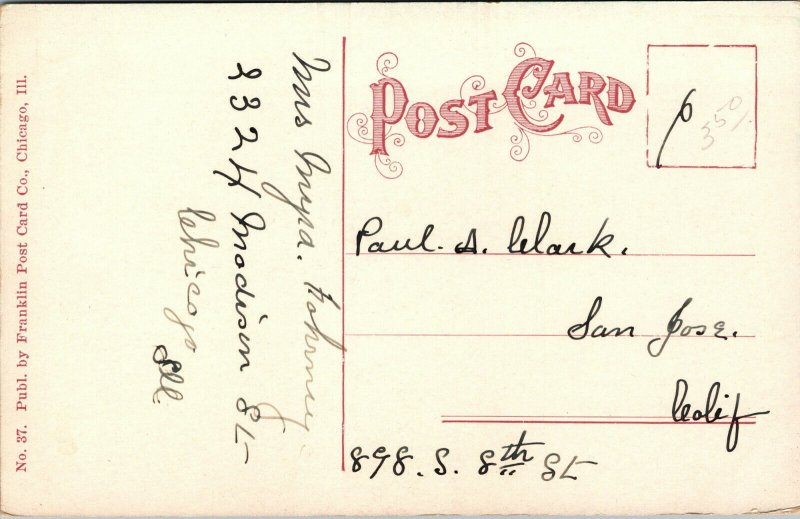 No. 37. Publ. by Franklin Post Card Co., Chicago, Ill.
Mrs Myra. Fohrney
2324 Modison St
Chicogo
Ill.
POST CARD
350/.
Paul. A. Clark.
San Jose.
Colif
898. S. 8th St